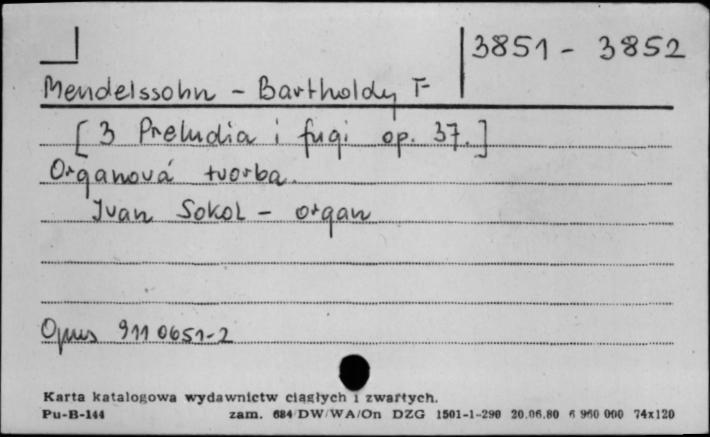 3851 - 3852
Mendelssohn - Bartholdy F
[3 Preludia i fugi op. 37.]
Organová tvorba.
Ivan Sokol - organ
Opus 911 0651-2
Karta katalogowa wydawnictw ciągłych i zwartych.
Pu-B-144 zam. 684/DW/WA/On DZG 1501-1-290 20.06.80 6 960 000 74x120